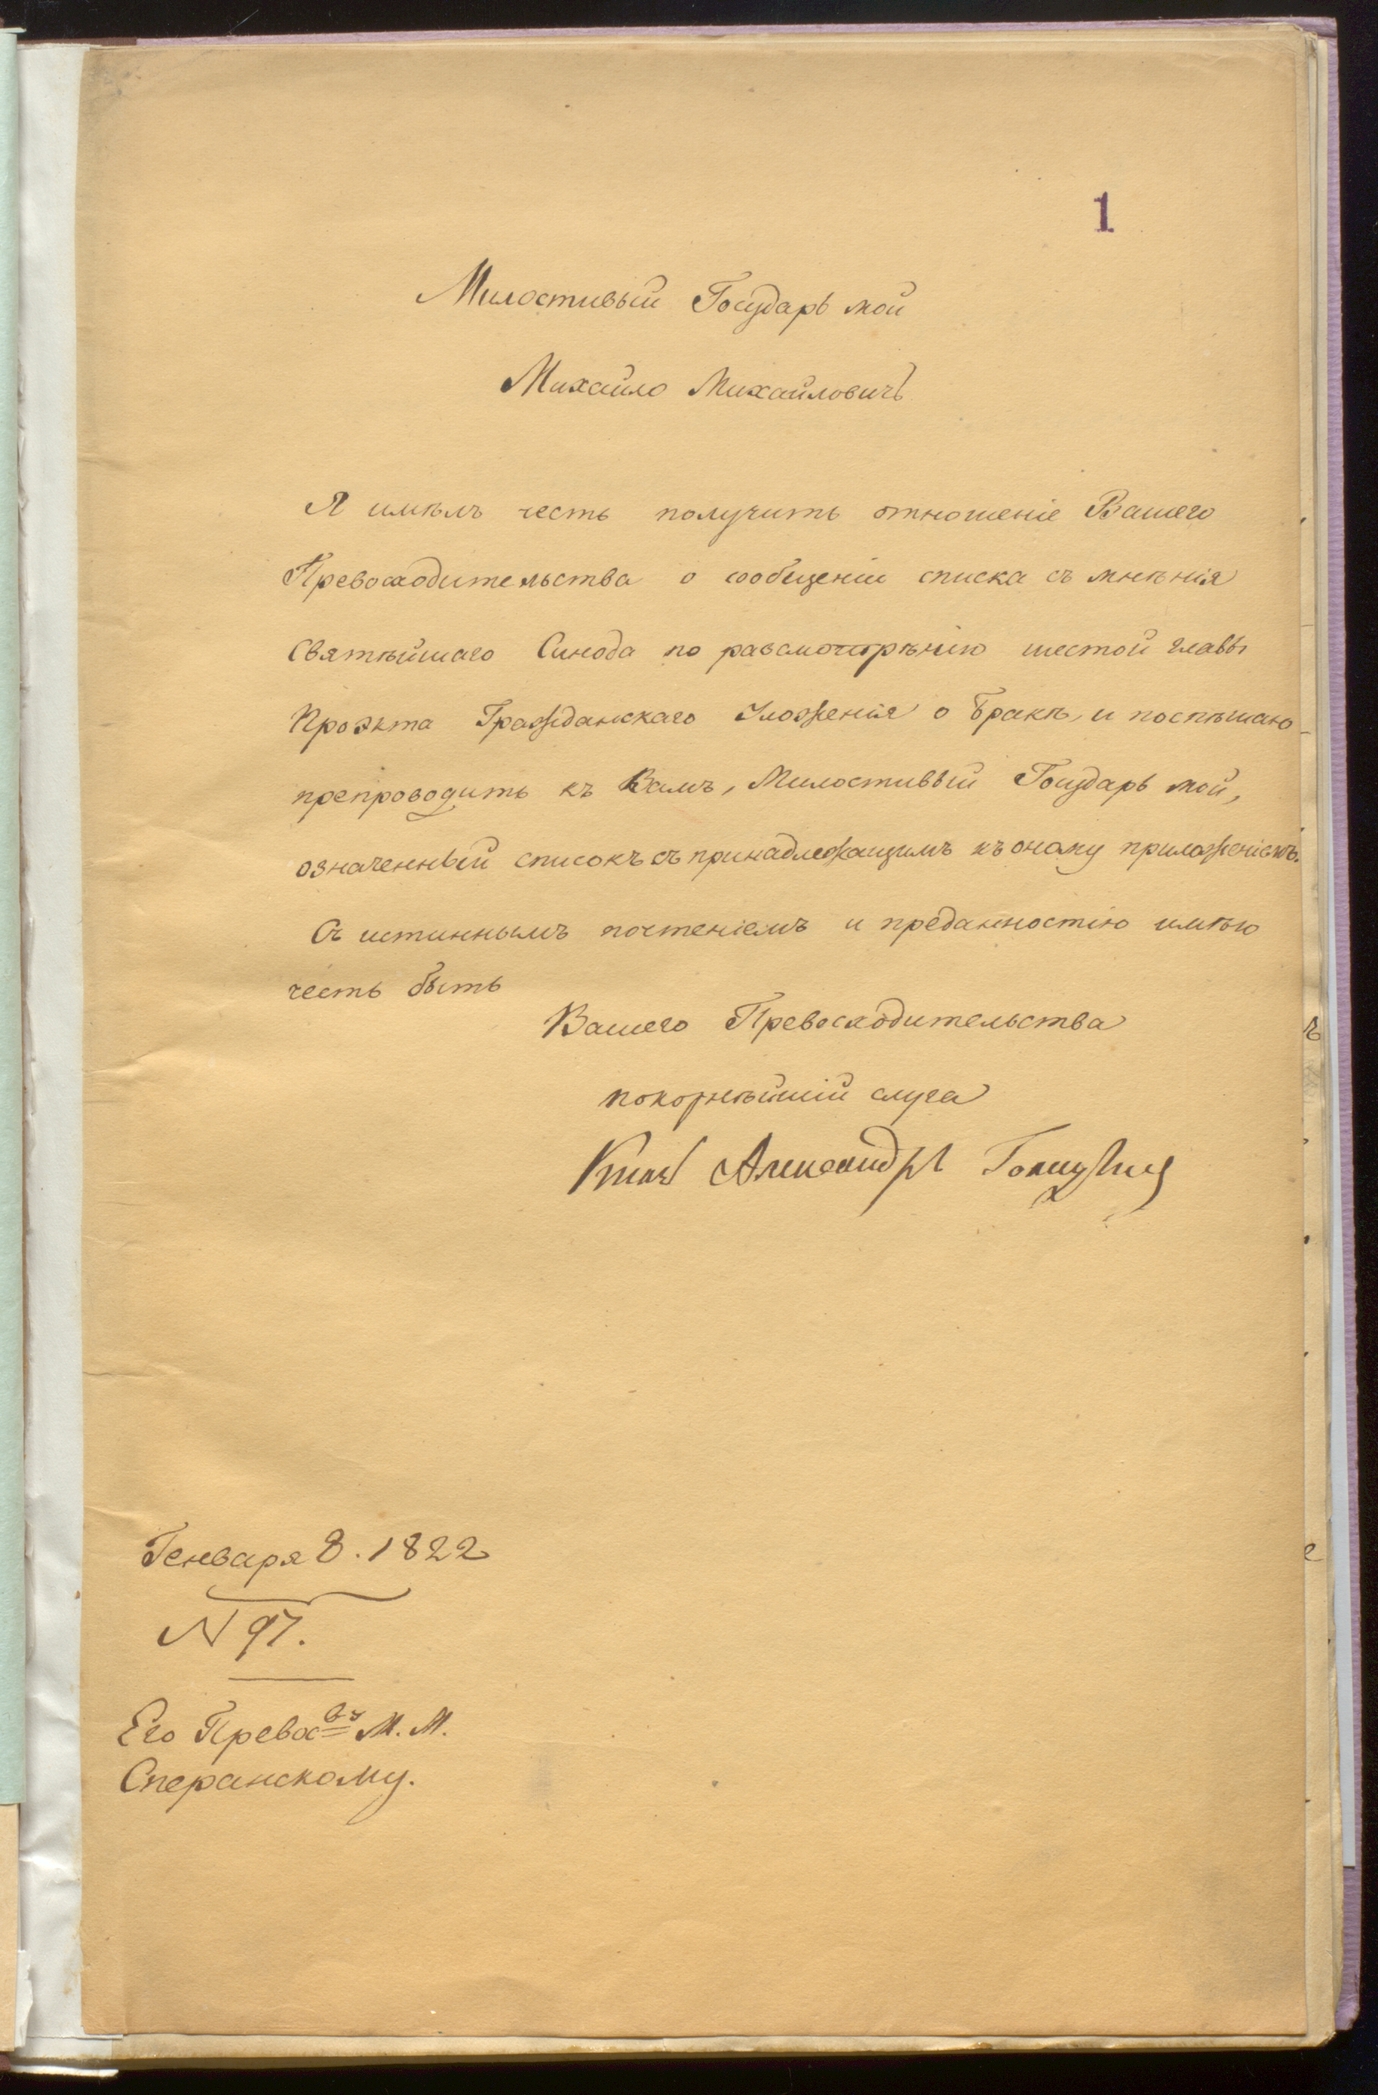 1
Милостивый Государь мой
Михайло Михайловичъ
Я имѣлъ честь получить отношеніе Вашего
Превосходительства о сообщеніи списка съ мнѣнія
Святѣйшаго Синода по разсмотрѣнію шестой главы
Проэкта Гражданскаго Уложенія о бракѣ, и поспѣшаю
препроводить къ Вамъ, Милостивый Государь мой,
означенный списокъ съ принадлежащимъ къ оному приложеніемъ.
Съ истиннымъ почтеніемъ и преданностію имѣю
честь быть
Вашего Превосходительства
покорнѣйшій слуга
Князь Александръ Голицынъ
Генваря 8. 1822
N 97.
Его Превос-ву М. М.
Сперанскому.